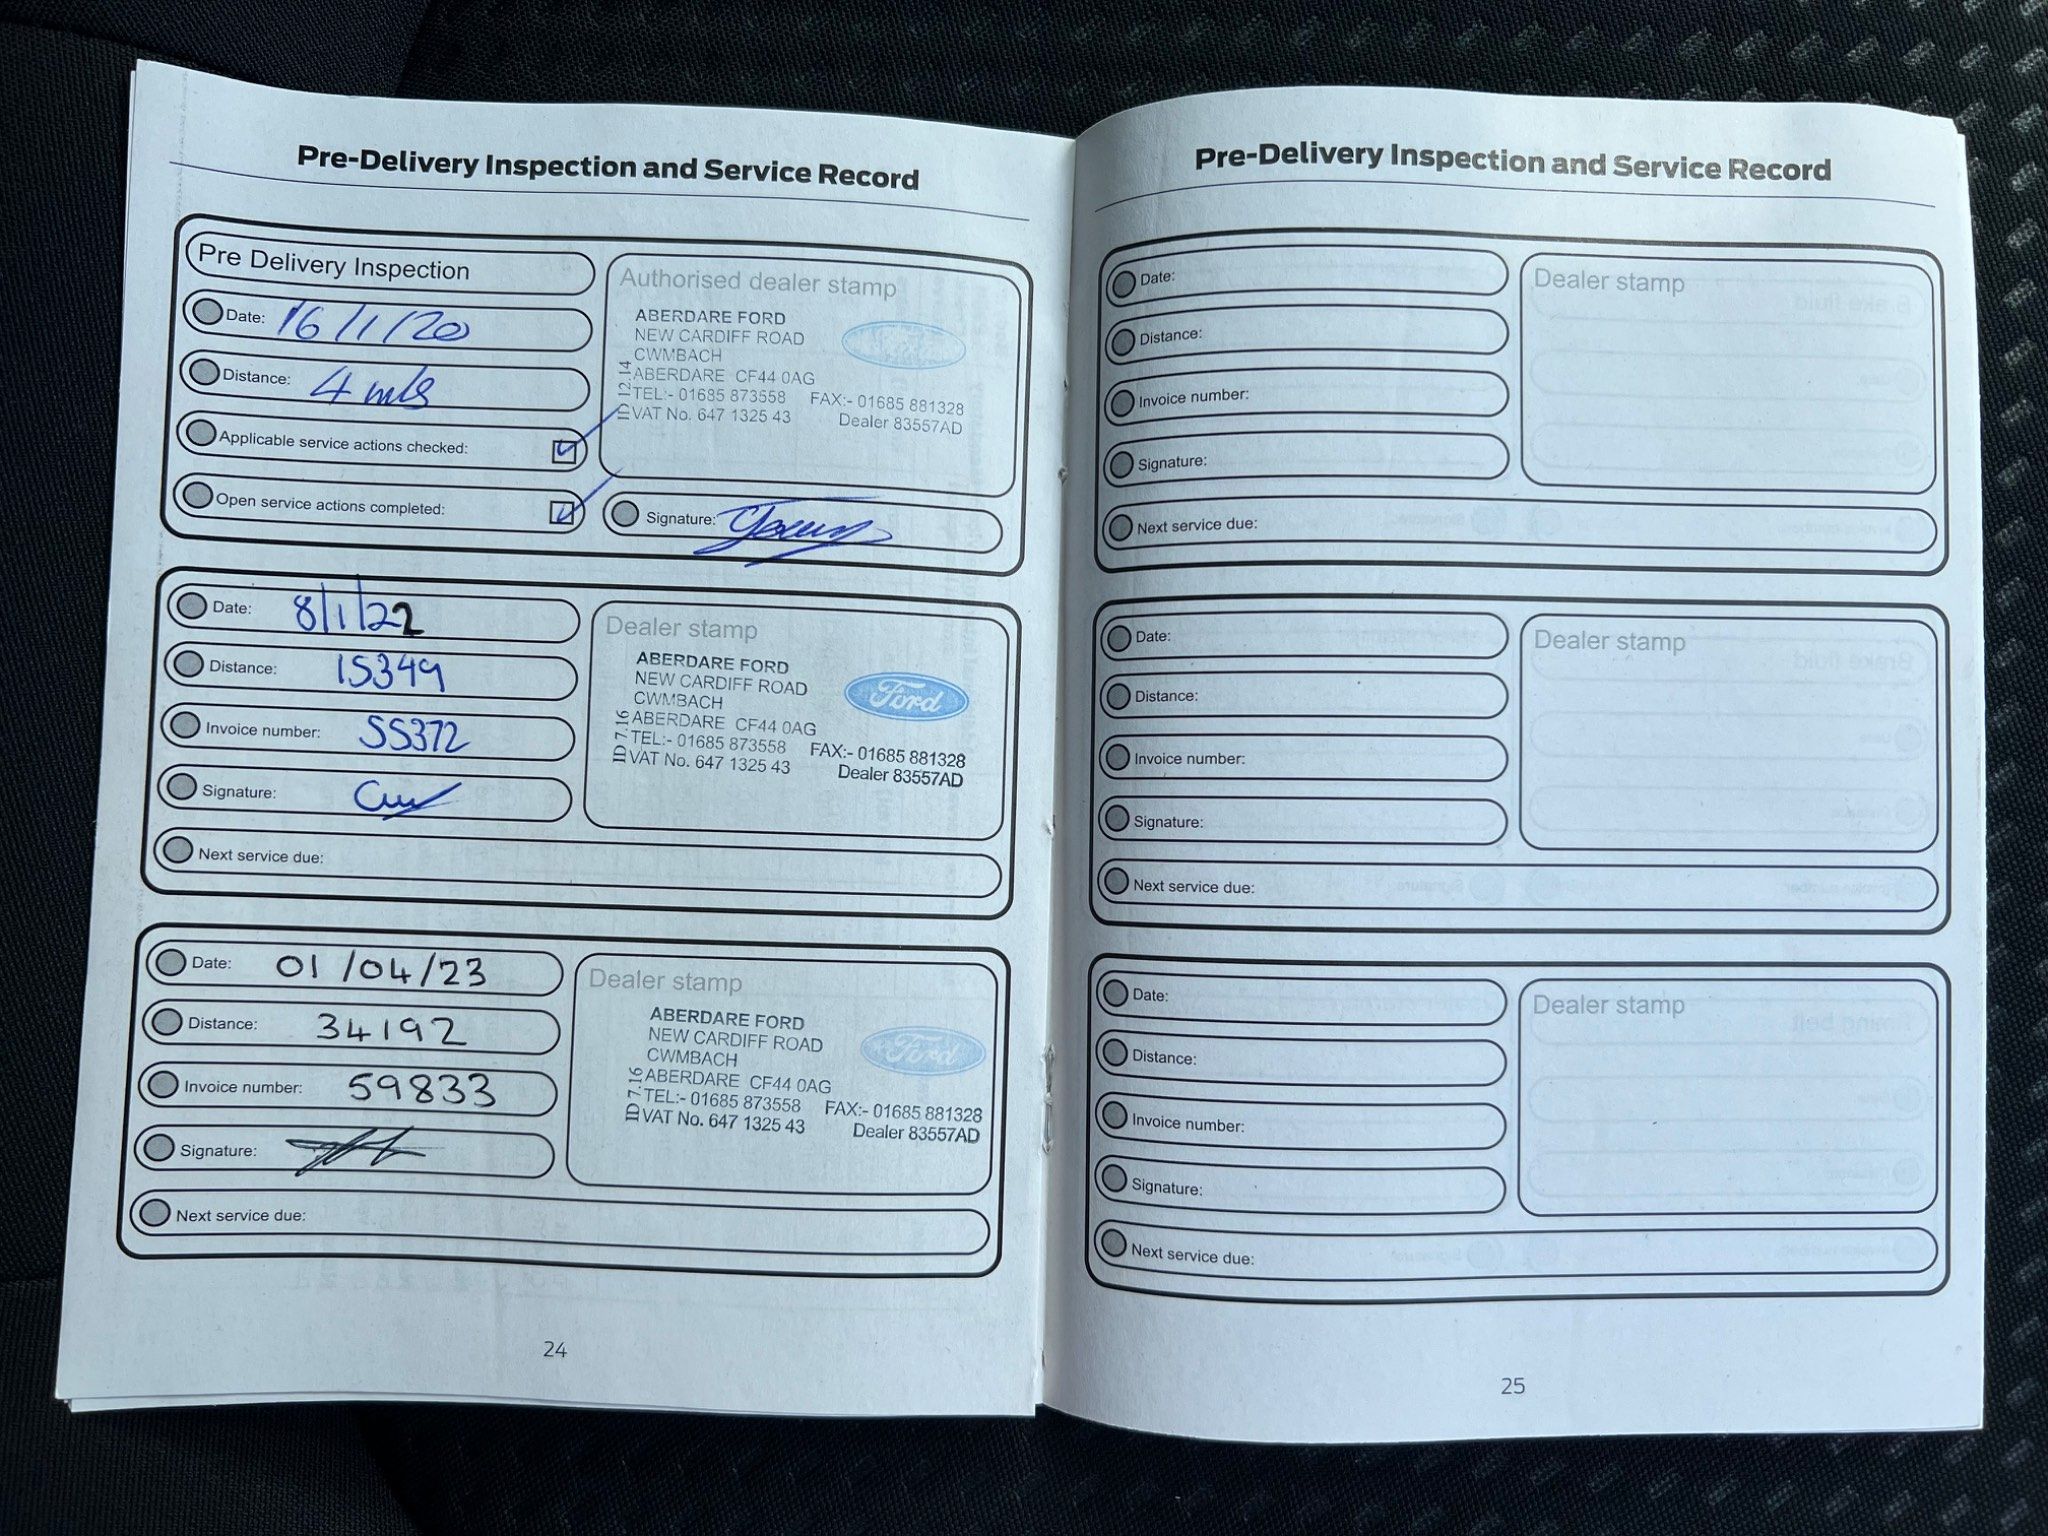 Pre-Delivery Inspection and Service Record
Pre Delivery Inspection
Date: 16/1/20
Distance: 4 mls
Applicable service actions checked:
Open service actions completed:
Authorised dealer stamp
ABERDARE FORD
NEW CARDIFF ROAD
CWMBACH
ABERDARE CF44 0AG
TEL:- 01685 873558 FAX:- 01685 881328
VAT No. 647 1325 43 Dealer 83557AD
ID 12.14
Signature:
Date: 8/1/22
Distance: 15349
Invoice number: SS372
Signature:
Next service due:
Dealer stamp
ABERDARE FORD
NEW CARDIFF ROAD
CWMBACH
ABERDARE CF44 0AG
TEL:- 01685 873558 FAX:- 01685 881328
VAT No. 647 1325 43 Dealer 83557AD
ID 7.16
Ford
Date: 01/04/23
Distance: 34192
Invoice number: 59833
Signature:
Next service due:
Dealer stamp
ABERDARE FORD
NEW CARDIFF ROAD
CWMBACH
ABERDARE CF44 0AG
TEL:- 01685 873558 FAX:- 01685 881328
VAT No. 647 1325 43 Dealer 83557AD
ID 7.16
Ford
24
Pre-Delivery Inspection and Service Record
Date:
Distance:
Invoice number:
Signature:
Next service due:
Dealer stamp
Date:
Distance:
Invoice number:
Signature:
Next service due:
Dealer stamp
Date:
Distance:
Invoice number:
Signature:
Next service due:
Dealer stamp
25